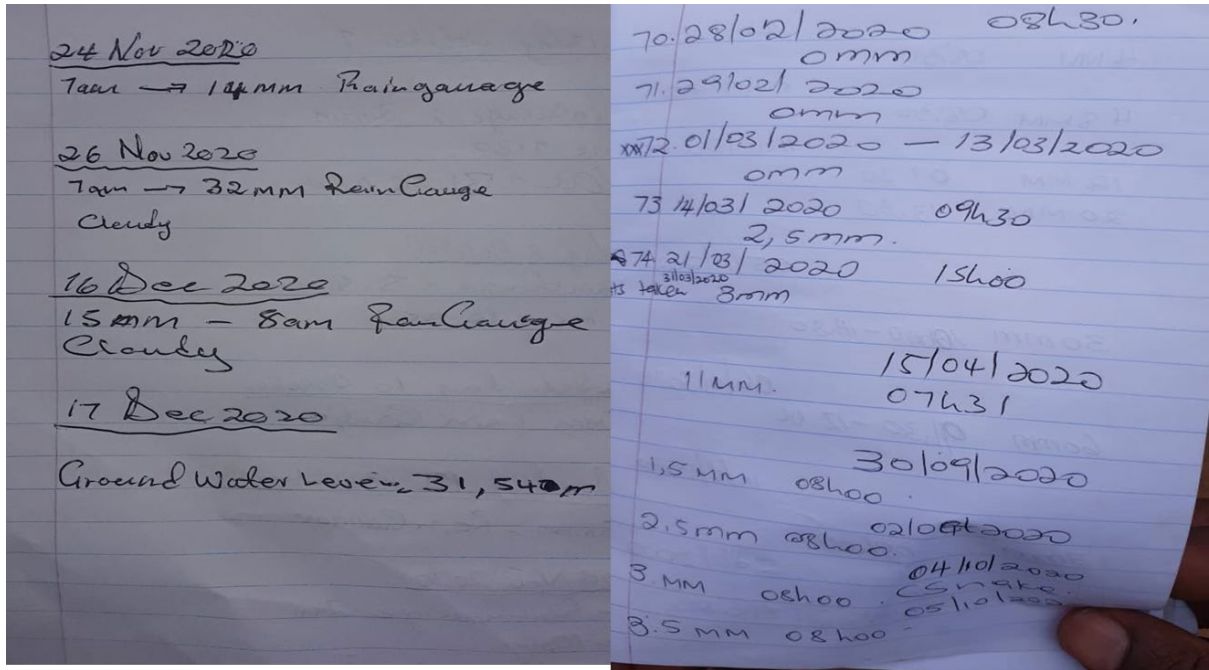 24 Nov 2020
7am → 14mm Raingauage
26 Nov 2020
7am → 32mm RainGauge
Cloudy
16 Dec 2020
15mm - 8am RainGauge
Cloudy
17 Dec 2020
Ground Water Level = 31,540m
70. 28/02/2020 08h30.
0mm
71. 29/02/2020
0mm
72. 01/03/2020 - 13/03/2020
0mm
73 14/03/2020 09h30
2,5mm.
74. 21/03/2020 15h00
31/03/2020
taken 3mm
15/04/2020
11MM. 07h31
30/09/2020
1,5MM 08h00.
2.5mm 08h00. 02/2020
04/10/2020
3.MM 08h00. (Snake.
05/10/202
3.5MM 08h00